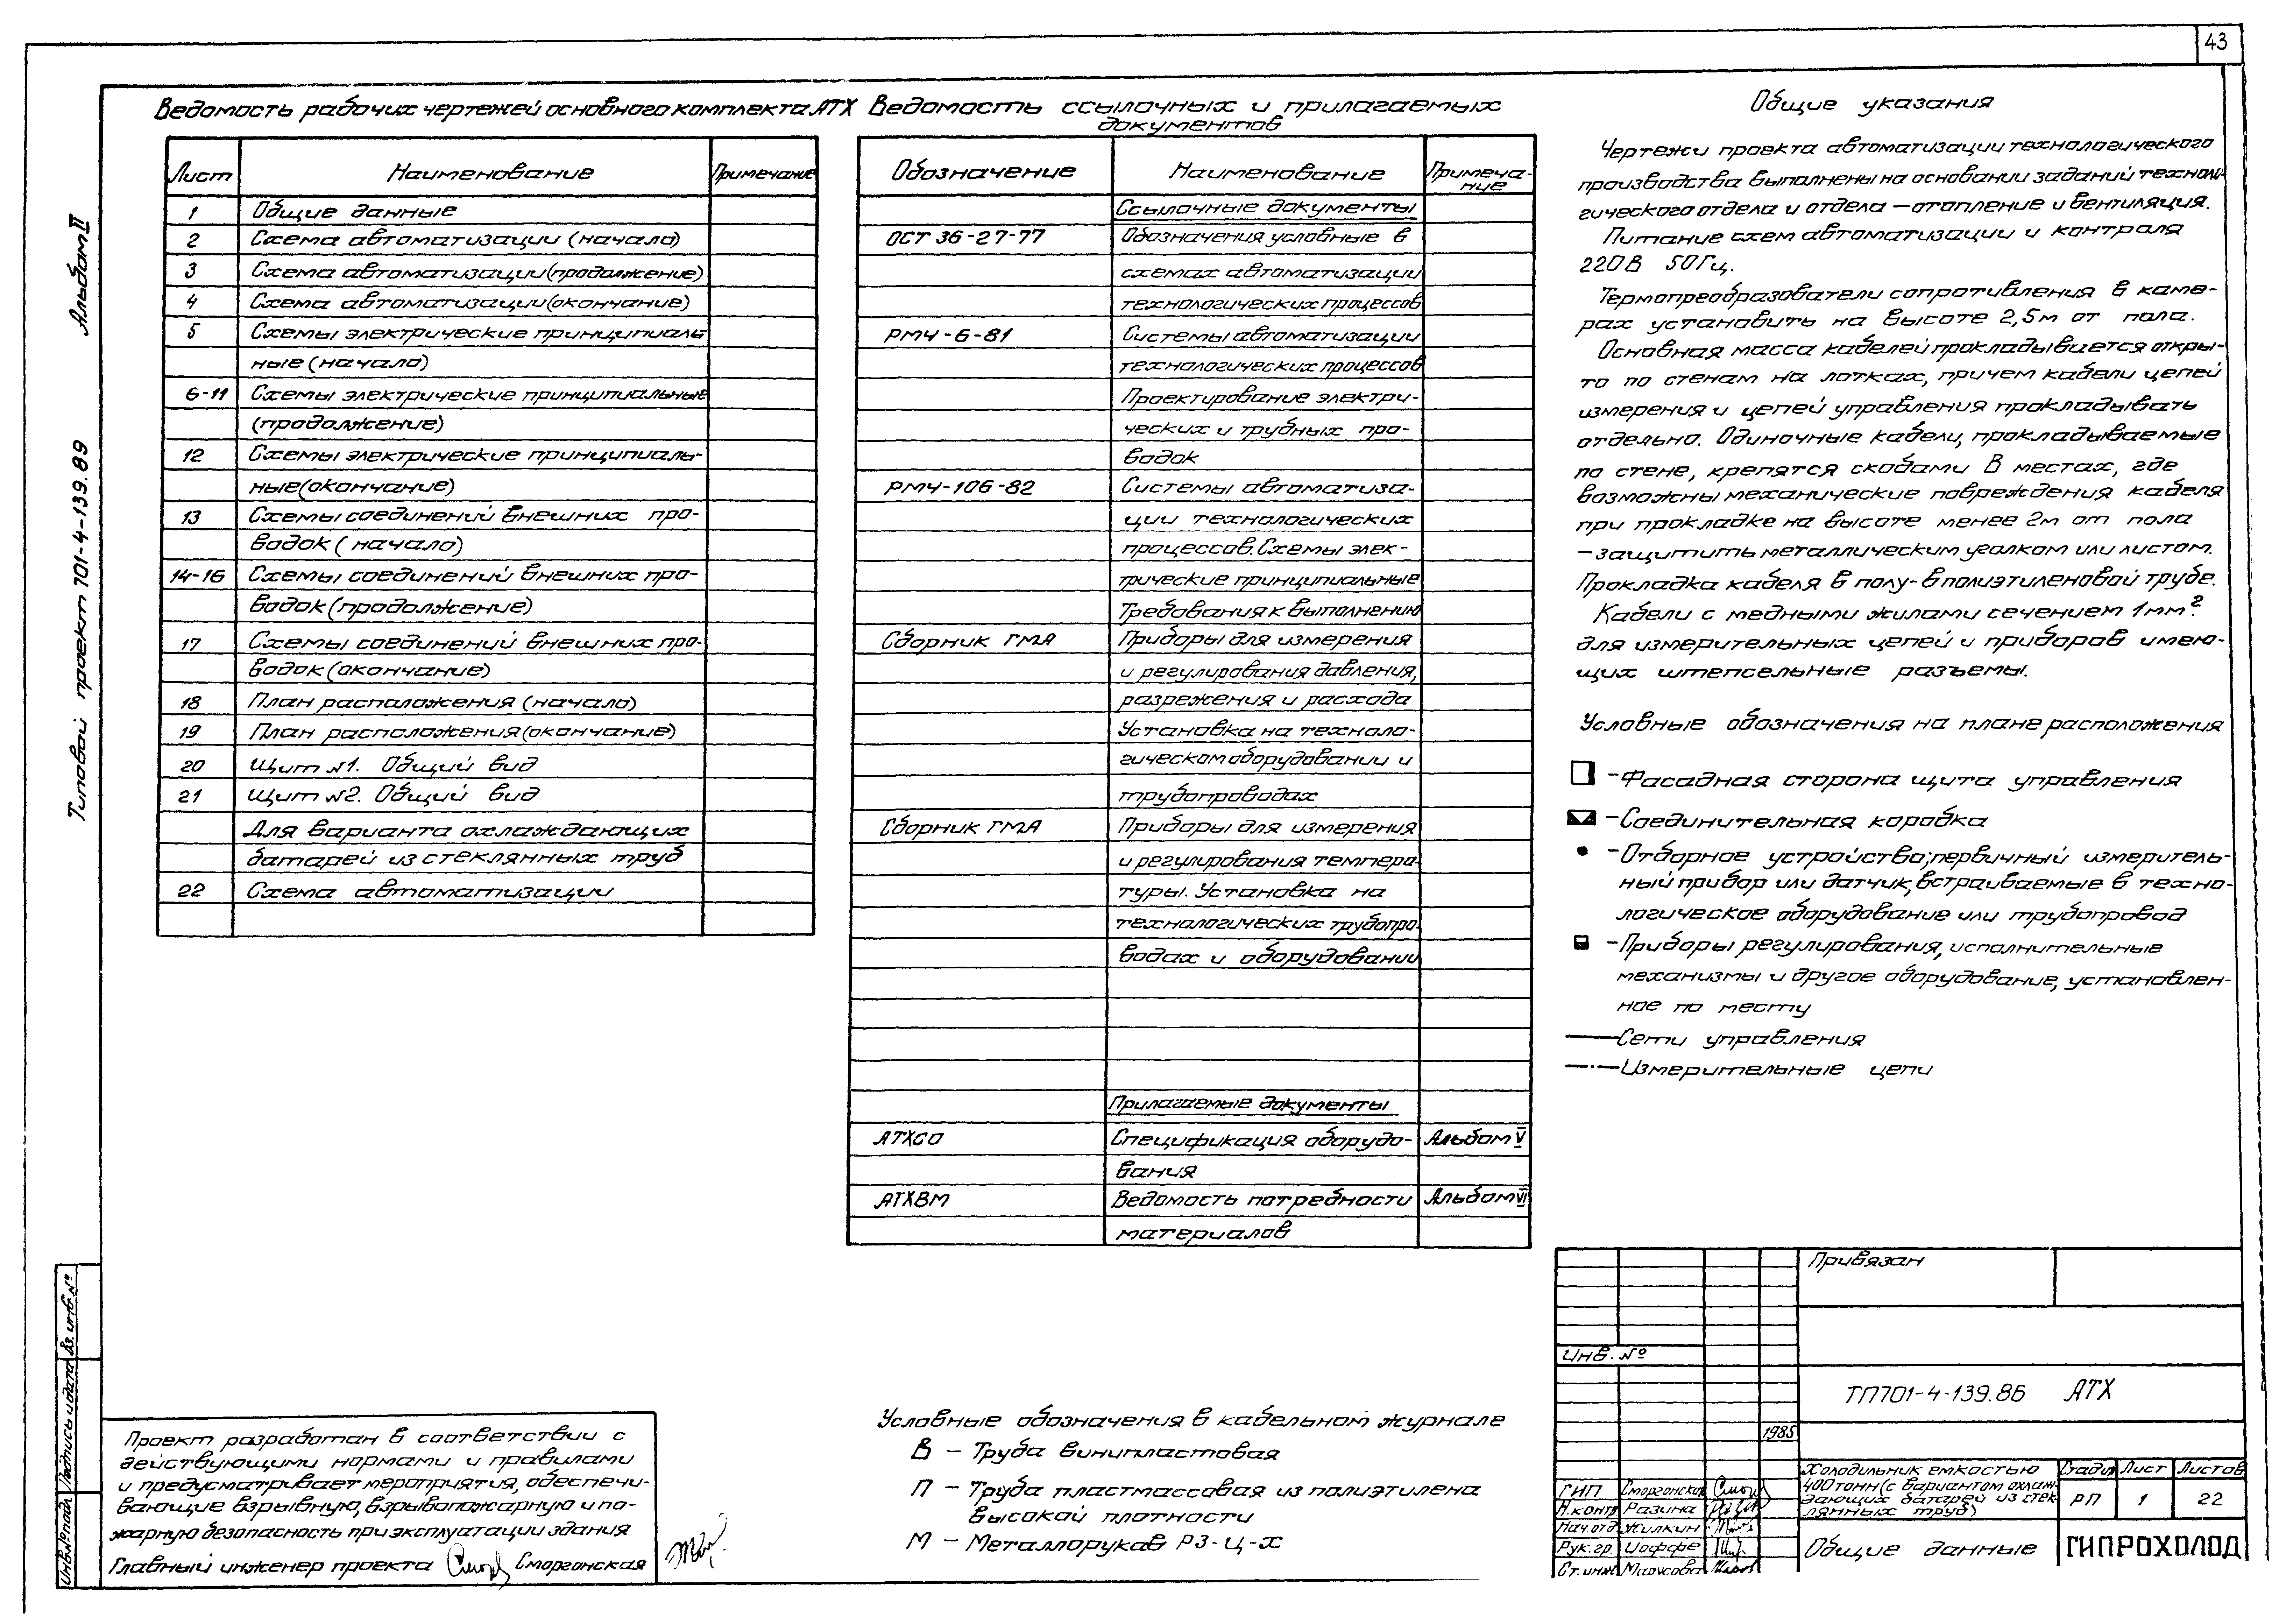 43
Альбом II
Типовой проект 701-4-139.89
Ведомость рабочих чертежей основного комплекта АТХ
Лист Наименование Примечание
1 Общие данные
2 Схема автоматизации (начало)
3 Схема автоматизации (продолжение)
4 Схема автоматизации (окончание)
5 Схемы электрические принципиаль-
ные (начало)
6-11 Схемы электрические принципиальные
(продолжение)
12 Схемы электрические принципиаль-
ные (окончание)
13 Схемы соединений внешних про-
водок (начало)
14-16 Схемы соединений внешних про-
водок (продолжение)
17 Схемы соединений внешних про-
водок (окончание)
18 План расположения (начало)
19 План расположения (окончание)
20 Щит №1. Общий вид
21 Щит №2. Общий вид
Для варианта охлаждающих
батарей из стеклянных труб
22 Схема автоматизации
Ведомость ссылочных и прилагаемых
документов
Обозначение Наименование Примеча-
ние
Ссылочные документы
ОСТ 36-27-77 Обозначения условные в
схемах автоматизации
технологических процессов
РМ4-6-81 Системы автоматизации
технологических процессов
Проектирование электри-
ческих и трубных про-
водок
РМ4-106-82 Системы автоматиза-
ции технологических
процессов. Схемы элек-
трические принципиальные
Требования к выполнению
Сборник ТМА Приборы для измерения
и регулирования давления,
разрежения и расхода
Установка на техноло-
гическом оборудовании и
трубопроводах
Сборник ТМА Приборы для измерения
и регулирования темпера-
туры. Установка на
технологических трубопро-
водах и оборудовании
Прилагаемые документы
АТХСО Спецификация оборудо- Альбом V
вания
АТХВМ Ведомость потребности Альбом VI
материалов
Общие указания
Чертежи проекта автоматизации технологического
производства выполнены на основании заданий техноло-
гического отдела и отдела – отопление и вентиляция.
Питание схем автоматизации и контроля
220В 50Гц.
Термопреобразователи сопротивления в каме-
рах установить на высоте 2,5м от пола.
Основная масса кабелей прокладывается откры-
то по стенам на лотках, причем кабели цепей
измерения и цепей управления прокладывать
отдельно. Одиночные кабели, прокладываемые
по стене, крепятся скобами. В местах, где
возможны механические повреждения кабеля
при прокладке на высоте менее 2м от пола
– защитить металлическим уголком или листом.
Прокладка кабеля в полу - в полиэтиленовой трубе.
Кабели с медными жилами сечением 1мм²
для измерительных цепей и приборов имею-
щих штепсельные разъемы.
Условные обозначения на плане расположения
– Фасадная сторона щита управления
– Соединительная коробка
– Отборное устройство, первичный измеритель-
ный прибор или датчик, встраиваемые в техно-
логическое оборудование или трубопровод
– Приборы регулирования, исполнительные
механизмы и другое оборудование, установлен-
ное по месту
Сети управления
Измерительные цепи
Условные обозначения в кабельном журнале
В – Труба винипластовая
П – Труба пластмассовая из полиэтилена
высокой плотности
М – Металлорукав РЗ-Ц-Х
Проект разработан в соответствии с
действующими нормами и правилами
и предусматривает мероприятия, обеспечи-
вающие взрывную, взрывопожарную и по-
жарную безопасность при эксплуатации здания
Главный инженер проекта Сморгонская
Инв.№ подл. Подпись и дата Вз. инв. №
Привязан
Инв. №
ТП701-4-139.86 АТХ
1985
Холодильник емкостью
400 тонн (с вариантом охлаж-
дающих батарей из стек-
лянных труб)
Стадия Лист Листов
РП 1 22
ГИП Сморгонская
Н.контр Разина
Нач.отд Жилкин
Рук.гр Иоффе
Ст.инж Марусова
Общие данные
ГИПРОХОЛОД